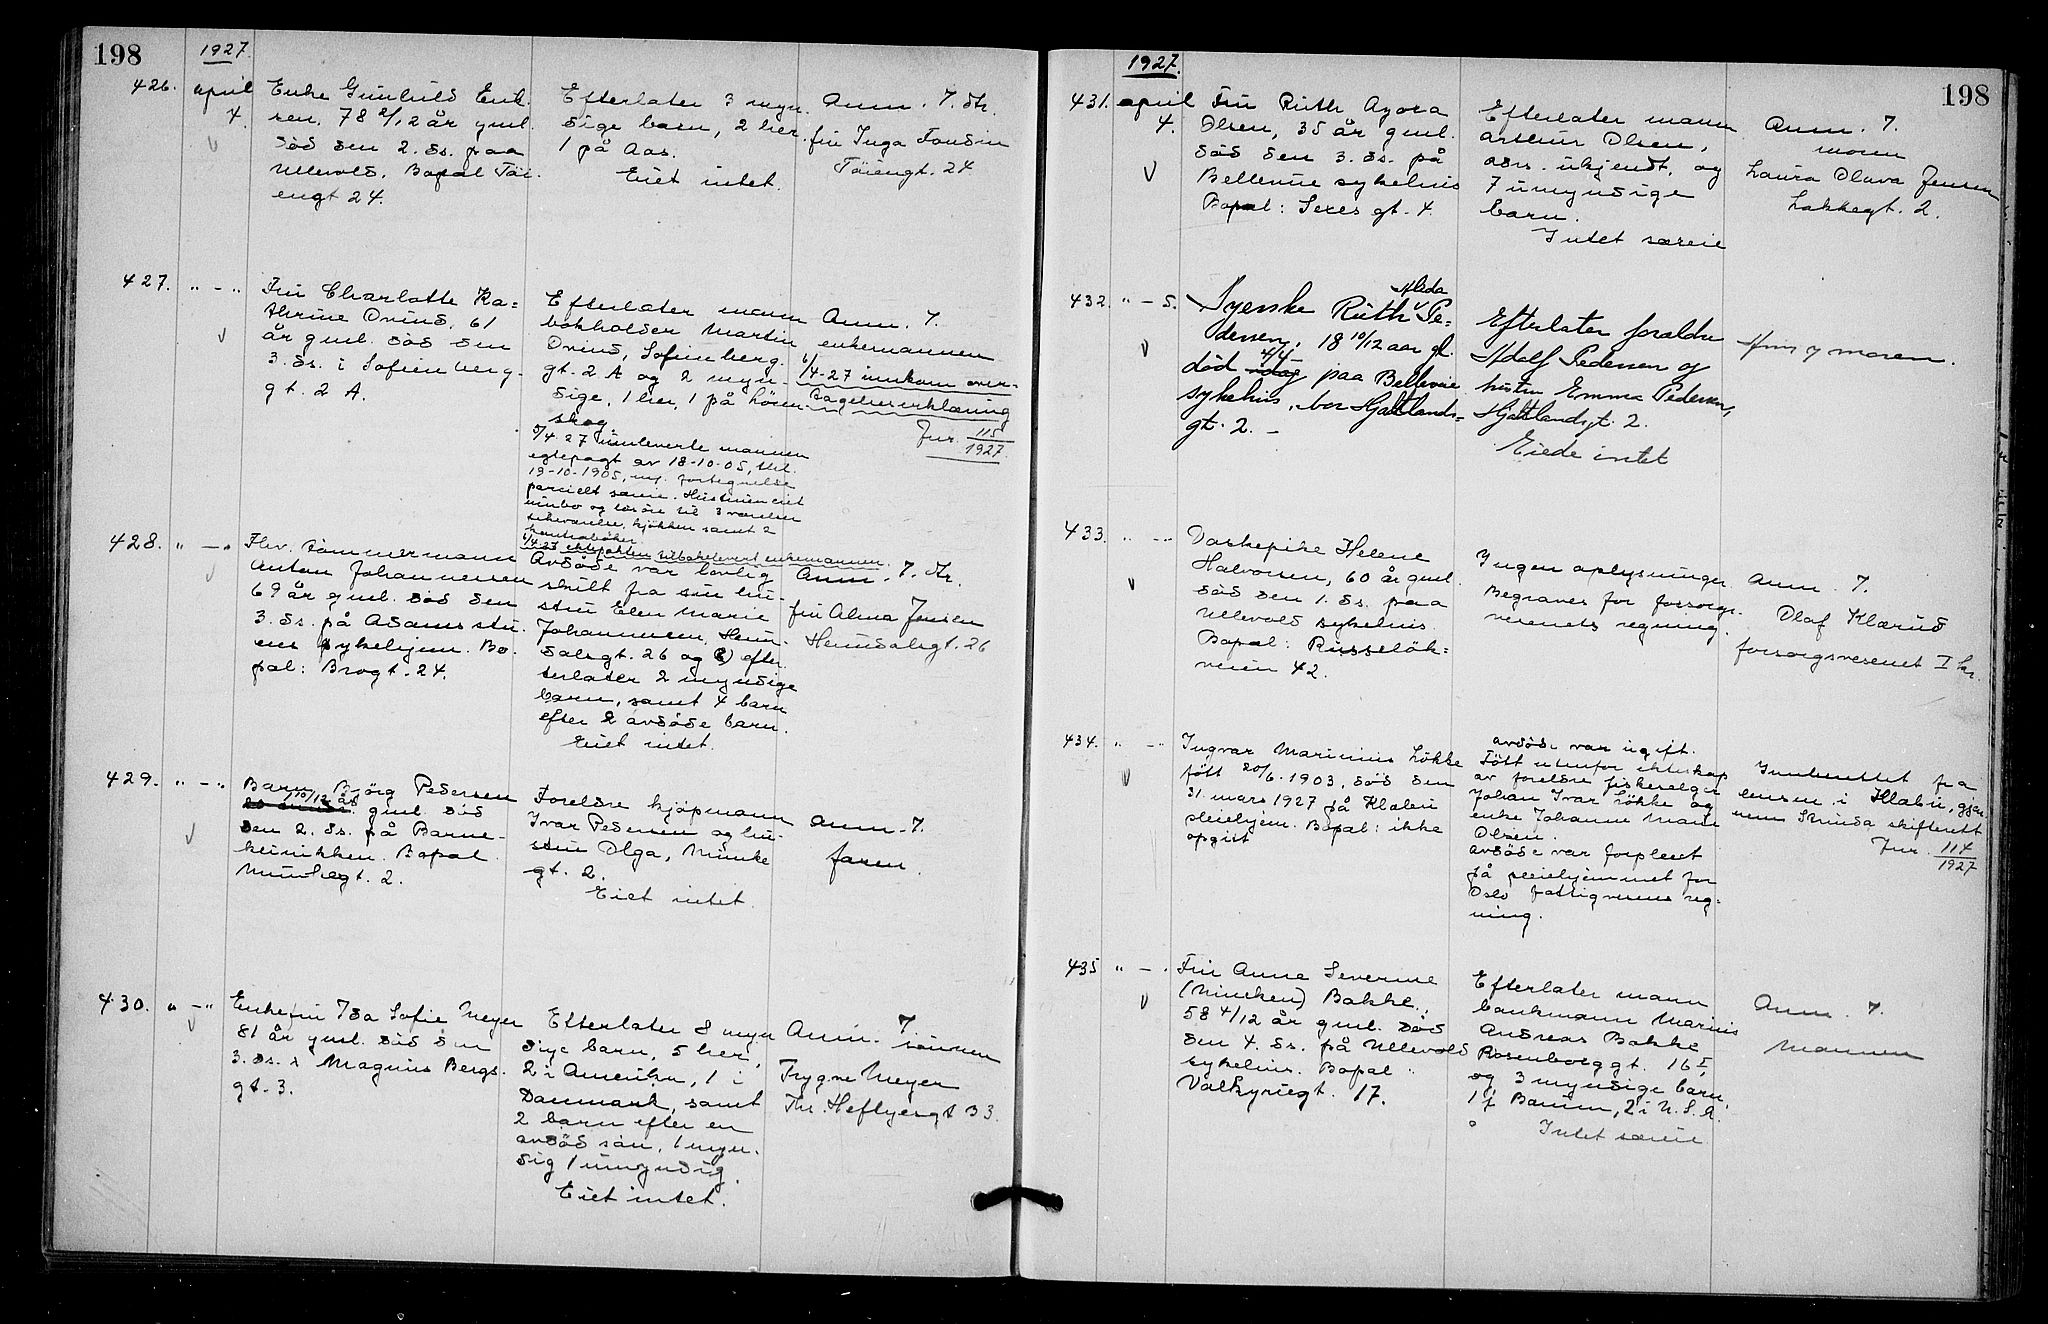 198
1927
426.
april
4.
Enke Gunhild Erik-
sen, 78 2/12 år gml.
död den 2. ds. paa
Ullevold. Bopal Töi-
engt 24.
Efterlater 3 myn-
dige barn, 2 her.
1 på Aas.
Eiet intet.
Anm. 7. dtr.
fru Inga
Töiengt. 24
427.
" - "
Fru Charlotte Ka=
thrine Ovind, 61
år gml. död den
3. ds. i Sofienberg-
gt. 2 A.
Efterlater mann
bokholder Martin
Ovind, Sofienberg
gt. 2 A og 2 myn-
dige, 1 her, 1 på Lören-
skog
5/4 27 innleverte mannen
egtepagt av 18-10-05, tkl.
19-10-1905, m. fortegnelse
parcielt særeie. Hustruen eiet
innbo og lösöre til 3 værelser
kjökken samt 2
6/4-27 ektepakten tilbakelevert enkemannen.
Anm. 7.
enkemannen
6/4-27 innkom over-
tagelseserklæring
Jnr. 115/1927
428.
" - "
Fhv. tömmermann
Anton Johannessen
69 år gml. död den
3. ds. på Adamstu-
ens sykehjem. Bo-
pal: Brogt. 24.
Avdöde var lovlig
skilt fra sin hu-
stru Elen Marie
Johannessen, Hem-
salsgt. 26 og efter-
terlater 2 myndige
barn, samt 4 barn
efter 2 avdöde barn.
Eiet intet.
Anm. 7. dtr.
fru Alma Jensen
Hemsdalsgt. 26
429.
" - "
Barn Björg Pedersen
1 10/12 år
gml. död
den 2. ds. på Barne-
klinikken. Bopal
Munkegt. 2.
Foreldre kjöpmann
Ivar Pedersen og hu-
stru Olga, Munke
gt. 2.
Eiet intet.
Anm. 7.
faren.
430.
" - "
Enkefru Ida Sofie Meyer
81 år gml. död den
3. ds. i Magnus Bergs.
gt. 3.
Efterlater 8 myn
dige barn, 5 her,
2 i Amerika, 1 i
Danmark, samt
2 barn efter en
avdöd sön, 1 myn-
dig 1 umyndig.
Eiet intet.
Anm. 7.
sönnen
Trygve Meyer
Thr. Heftyesgt 33.
198
1927.
431.
april
4.
Fru Ruth Agora
Olsen, 35 år gml.
död den 3. ds. på
Bellevue sykehus
Bopal: Seres gt. 4.
Efterlater mann
Arthur Olsen,
adrs. ukjendt, og
7 umyndige
barn.
Intet særeie
Anm. 7.
moren
Laura Olava Jensen
Lakkegt. 2.
432.
" - 5.
Alida
Syerske Ruth Pe=
dersen, 18 10/12 aar gl.
4/4
död idag paa Bellevue
sykehus, bor Hjaltlands=
gt. 2. -
Efterlater foraldre
Adolf Pedersen og
hustru Emma Pedersen,
Hjaltlandsgt. 2.
Eiede intet
Anm 7 moren.
433.
" - "
Vaskepike Helene
Halvorsen, 60 år gml.
död den 1. ds. paa
Ullevold sykehus.
Bopal: Russelök=
veien 42.
Ingen oplysninger
Begraves for forsorgs-
vesenets regning.
Anm. 7.
Olaf Klærud
forsorgsvesenet I kr.
434.
" - "
Ingvar Marinius Lökke
fött 20/6-1903, död den
31. mars 1927 på Klæbu
pleiehjem. Bopal: ikke
opgitt
avdöde var ugift.
Fött utenfor ekteskap
av foreldre fiskerelger
Johan Ivar Lökke og
enke Johanne Marie
Olsen.
Avdöde var forpleiet
på pleiehjemmet for
Oslo fattigvesens reg-
ning.
Innberettet fra
lensm. i Klæbu, gjen-
nem Strinda skifterett
Jnr. 114/1927
435
" - "
Fru Anne Severine
(Mincken) Bakke,
58 4/12 år gml. död
den 4. ds. på Ullevold
sykehus. Bopal:
Valkyriegt. 17.
Efterlater mann
bankmann Marius
Andreas Bakke
Rosenborggt. 16 I,
og 3 myndige barn,
1 i Bærum, 2 i U.S.A.
Intet særeie
Anm. 7.
Mannen